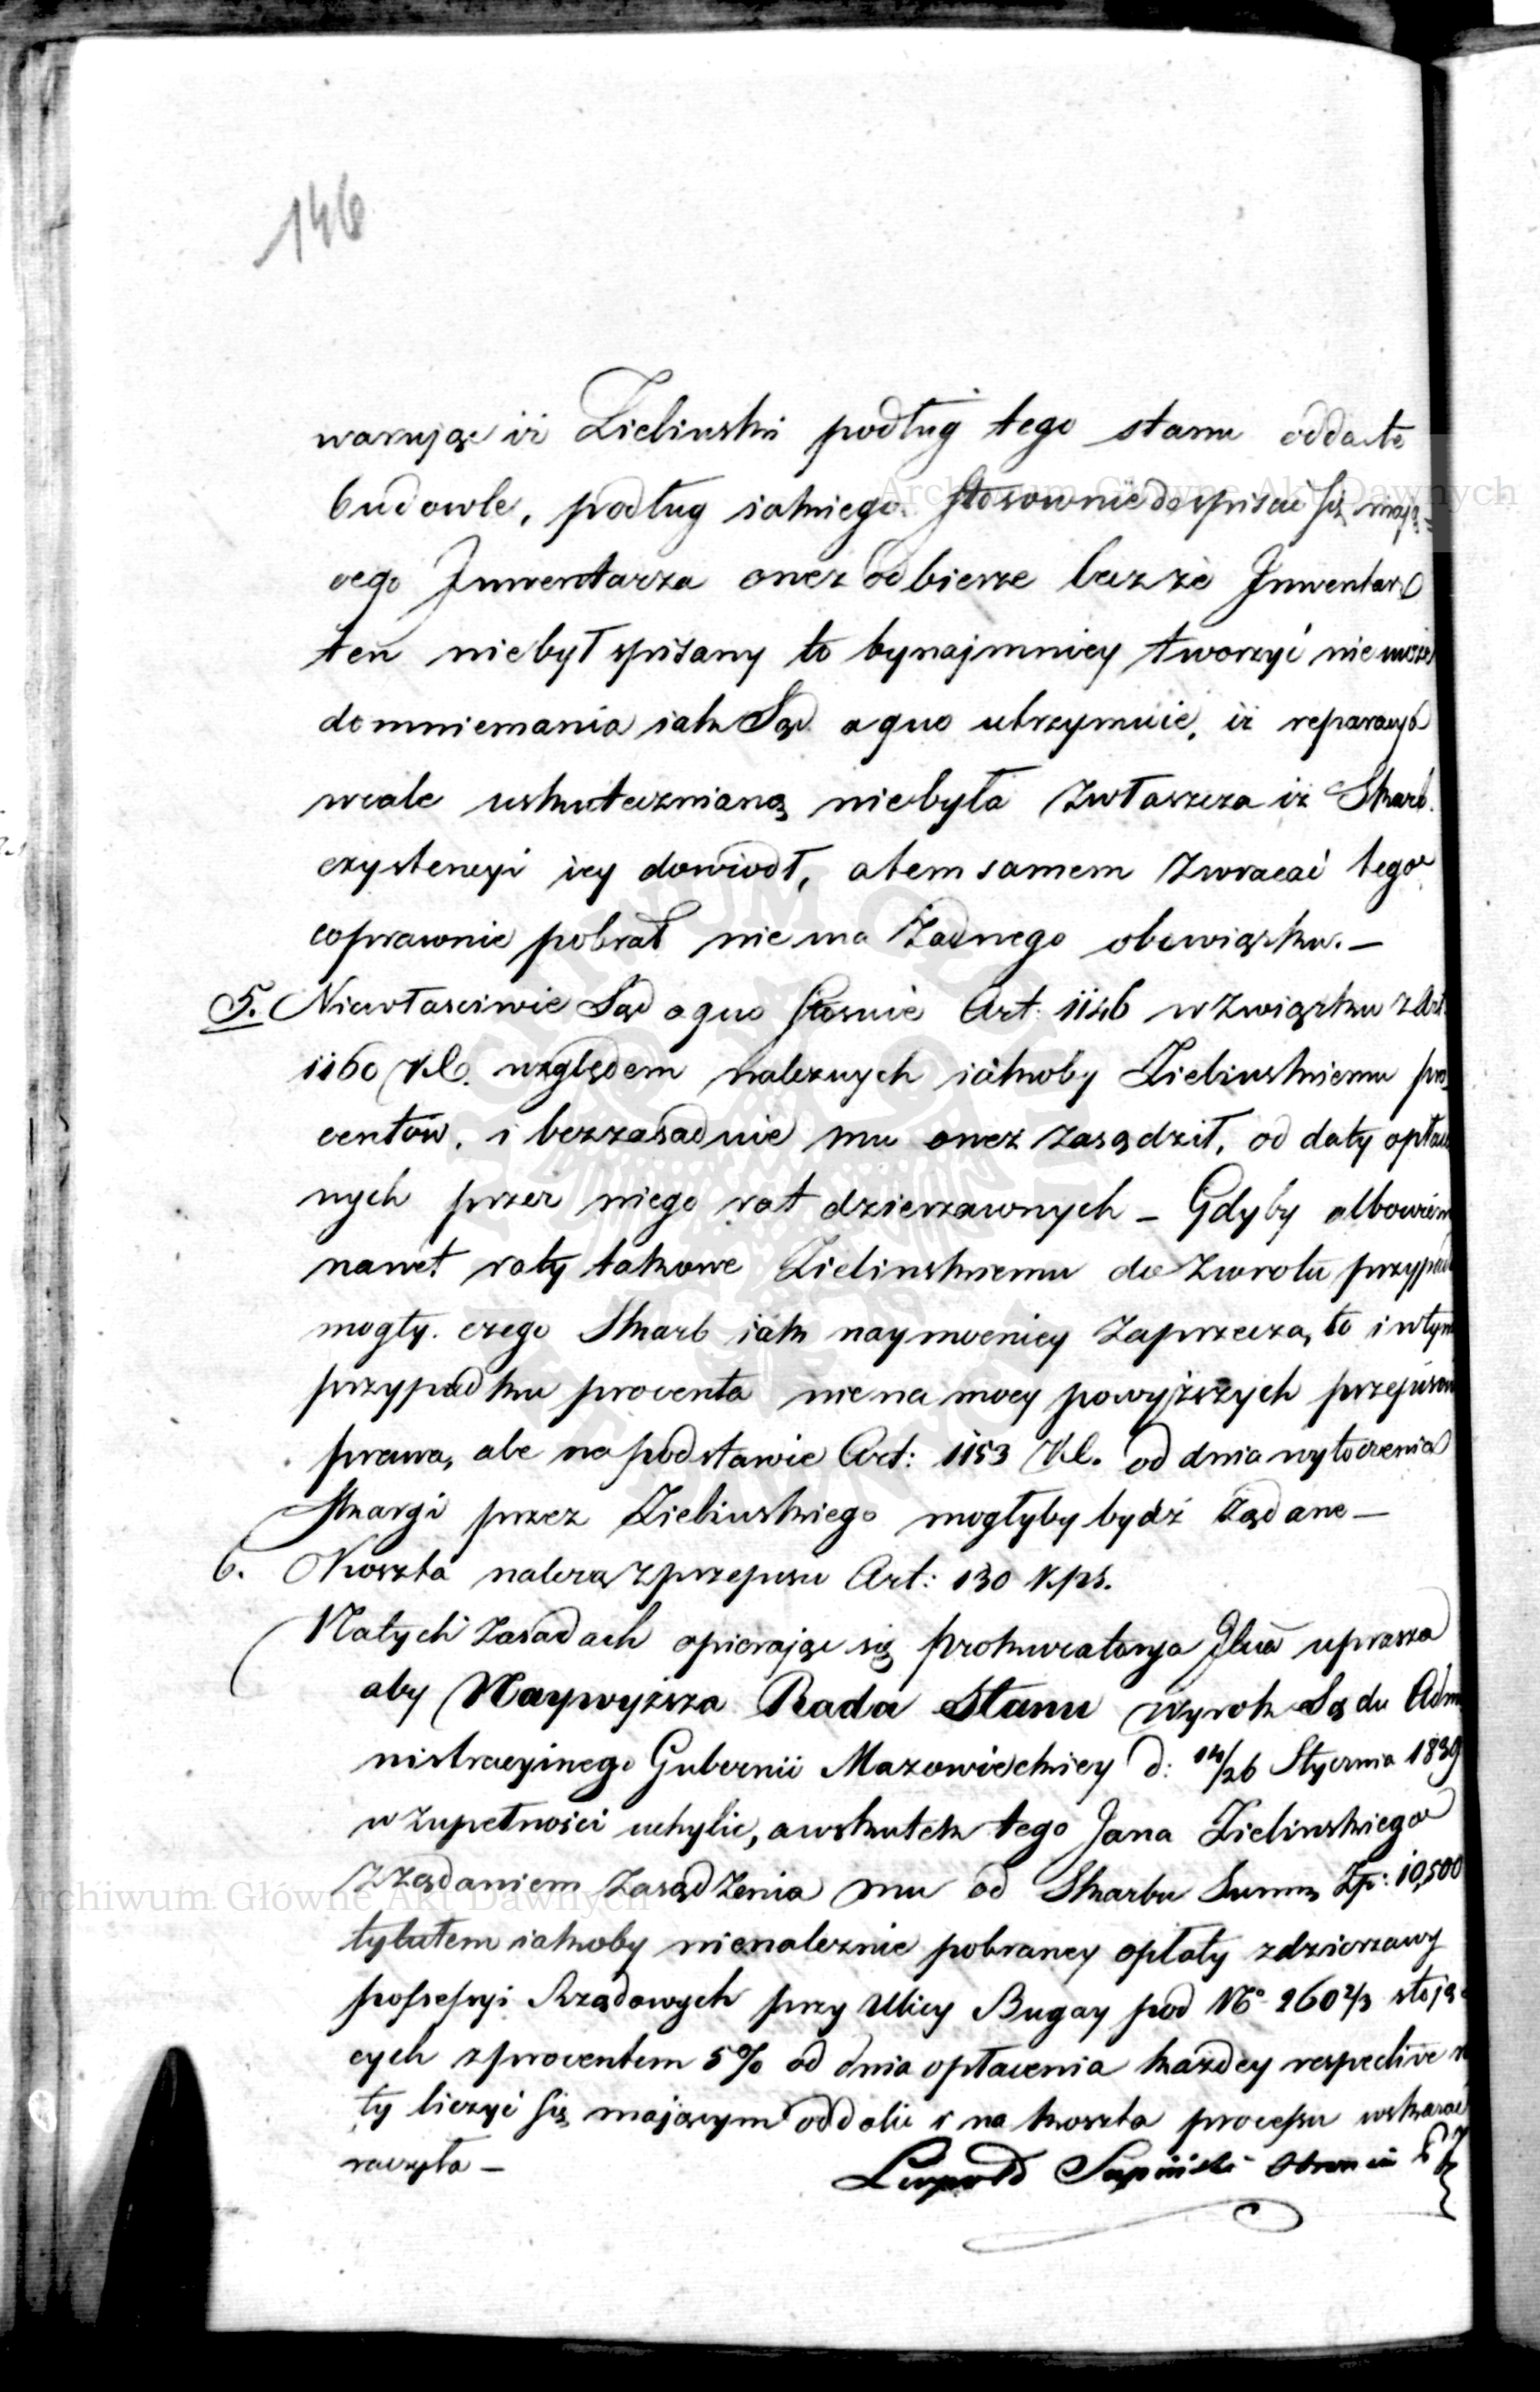 146
warując iż Zielinski podług tego stanu odda te
budowle, podług iakiego stosownie do spisać się mają=
cego Inwentarza onez odbierze lecz że Inwentarz
ten niebył spisany to bynajmniey tworzyć nie może
domniemania iak Sąd a quo utrzymuie, iż reparacya
wcale uskutecznianą niebyła zwłaszcza iż Skarb
exystencyi iey dowiodł, a tem samem zwracać tego
co prawnie pobrał nie ma żadnego obowiązku. —
5. Niewłasciwie Sąd a quo stosuie Art: 1146 w związku z Art.
1160 K.C. względem należnych iakoby Zielinskiemu pro
centów, i bezzasadnie mu onez zasądził, od daty opłaco
nych przez niego rat dzierzawnych — Gdyby albowiem
nawet raty takowe Zielinskiemu do zwrotu przypad
mogły. czego Skarb iak naymocniey zaprzecza, to i wtym
przypadku procenta nie na mocy powyższych przepisow
prawa, ale na podstawie Art: 1153 K.C. od dnia wytoczenia
Skargi przez Zielinskiego mogłyby bydź żądane —
6. Koszta należą z przepisu Art: 130 K.p.s.
Na tych zasadach opierając się Prokuratorya Jlna uprasza
aby Naywyższa Rada Stanu wyrok Sądu Adm
nistracyinego Gubernii Mazowieckiey d: 14/26 Stycznia 1839
w zupełności uchylić, a w skutek tego Jana Zielinskiego
z żądaniem zasądzenia mu od Skarbu Summ Zp: 10,500
tytułem iakoby nienależnie pobraney opłaty z dzierzawy
possessyi Rządowych przy Ulicy Bugay pod No 260 2/3 stoją
cych z procentem 5% od dnia opłacenia każdey respective ra
ty liczyć się mającym oddalić i na koszta processu wskazać
raczyła —
Leopold Supiński Obronca